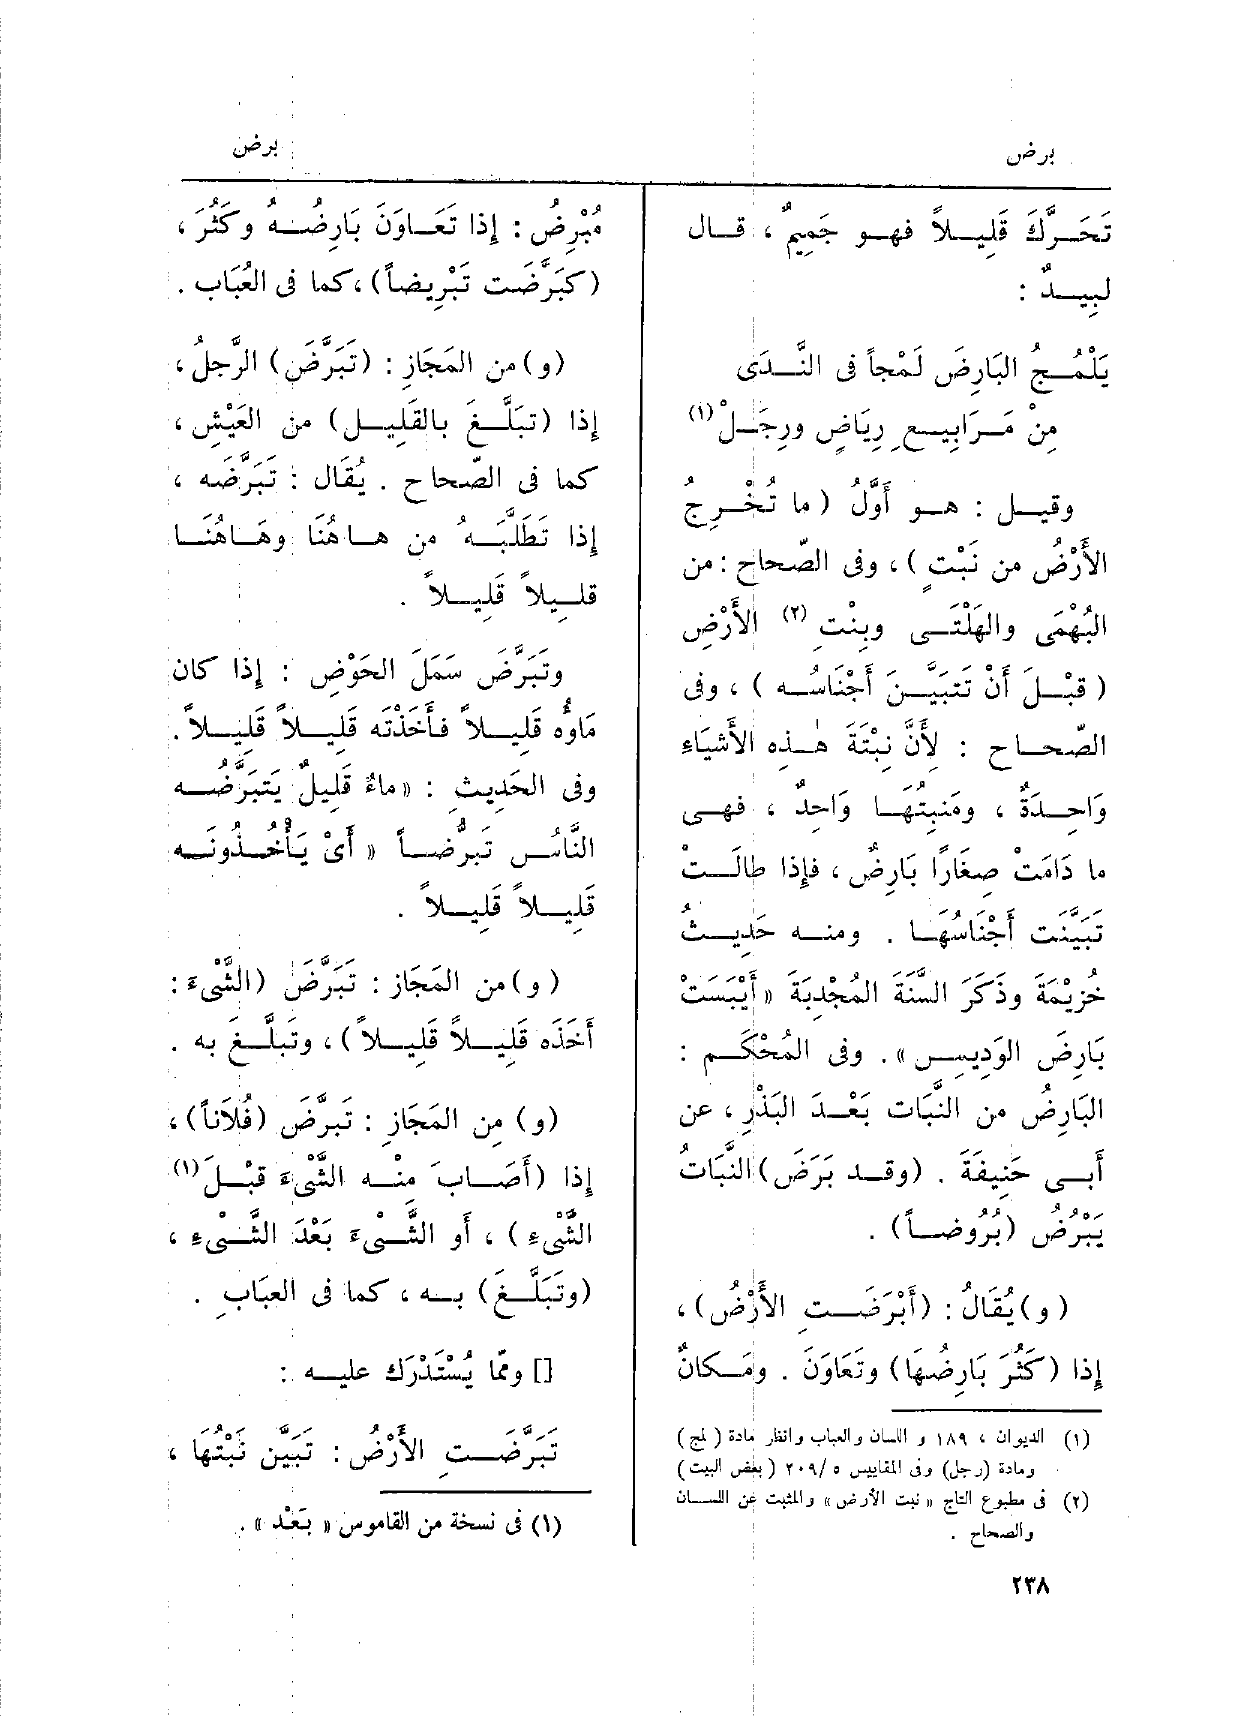 برض
برض
تَحَرَّكَ قَلِيلاً فهو جَمِيمٌ ، قال
لبِيدٌ :
يَلْمُجُ البَارِضَ لَمْجاً فى النَّدَى
مِنْ مَرَابِيعِ رِيَاضٍ ورِجَلْ (١)
وقيل : هو أَوَّلُ ( ما تُخْرِجُ
الأَرْضُ من نَبْتٍ ) ، وفى الصّحاح : من
البُهْمَى والهَلْتَى وبِنْتِ (٢) الأَرْضِ
( قَبْلَ أَنْ تَتَبَيَّنَ أَجْنَاسُه ) ، وفى
الصّحاح : لِأَنَّ نِبْتَةَ هٰذِه الأَشياءِ
وَاحِدَةٌ ، ومَنبِتُهَا وَاحِدٌ ، فهى
ما دَامَتْ صِغَارًا بَارِضٌ ، فإِذا طالَتْ
تَبَيَّنَت أَجْنَاسُهَا . ومنه حَدِيثُ
خُزَيْمَةَ وذَكَرَ السَّنَةَ المُجْدِبَةَ « أَيْبَسَتْ
بَارِضَ الوَدِيسِ » . وفى المُحْكَم :
البَارِضُ من النَّبَات بَعْدَ البَذْرِ ، عن
أَبى حَنِيفَةَ . (وقد بَرَضَ) النَّبَاتُ
يَبْرُضُ (بُرُوضاً) .
( و ) يُقَالُ : (أَبْرَضَتِ الأَرْضُ) ،
إِذا (كَثُرَ بَارِضُهَا) وتَعَاوَنَ . ومَكانٌ
(١) الديوان ، ١٨٩ و اللسان والعباب وانظر مادة ( لمج )
ومادة (رجل) وفى المقاييس ٥ /٢٠٩ ( بعض البيت )
(٢) فى مطبوع التاج « نبت الأرض » والمثبت عن اللسان
والصحاح .
مُبْرِضٌ : إِذا تَعَاوَنَ بَارِضُه وكَثُرَ ،
(كبَرَّضَت تَبْرِيضاً) ، كما فى العُبَاب .
(و) من المَجَازِ : (تَبَرَّضَ) الرَّجلُ ،
إِذا (تَبَلَّغَ بالقَلِيلِ) من العَيْشِ ،
كما فى الصّحاح . يُقَال : تَبَرَّضَه ،
إِذا تَطَلَّبَهُ من هاهُنَا وهَاهُنَا
قلِيلاً قَلِيلاً .
وتَبَرَّضَ سَمَلَ الحَوْضِ : إِذا كان
مَاؤُه قَلِيلاً فأَخَذْتَه قَلِيلاً قَلِيلاً .
وفى الحَدِيثِ : « ماءٌ قَلِيلٌ يَتَبَرَّضُه
النَّاسُ تَبَرُّضاً » أَىْ يَأْخُذُونَه
قَلِيلاً قَلِيلاً .
( و ) من المَجَاز : تَبَرَّضَ (الشَّىْءَ :
أَخَذَه قَلِيلاً قَلِيلاً ) ، وتَبَلَّغَ به .
(و) مِن المَجَازِ : تَبَرَّضَ (فُلَاناً) ،
إِذا (أَصَابَ مِنْه الشَّىْءَ قَبْلَ (١)
الشَّىْءِ ) ، أَو الشَّىْءَ بَعْدَ الشَّىْءِ ،
(وتَبَلَّغَ) به ، كما فى العبَابِ .
[] وممّا يُسْتَدْرَك عليه :
تَبَرَّضَتِ الأَرْضُ : تَبَيَّن نَبْتُهَا ،
(١) فى نسخة من القاموس « بَعْد » .
٢٣٨